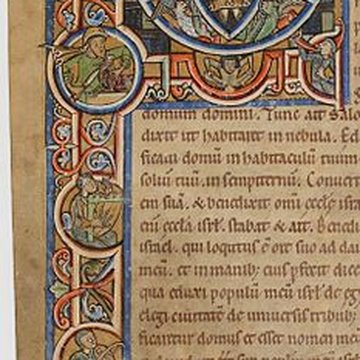 domum domini. Tunc ait Sal
dixit ut habitaret in nebula. Ed
ficaui domū in habitaculū tuum
soliū tuū in sempiternū. Conuert
em suā. & benedixit omi eccłę isra
em eccła isrł. stabat & ait. Bened
israel. qui locutus ē ore suo ad dau
meū. et in manib; eius pfecit die
qua eduxi populū meū isrł de eg
elegi ciuitatē de uniuersis tribub;
ficaretur domus et esset nomen m